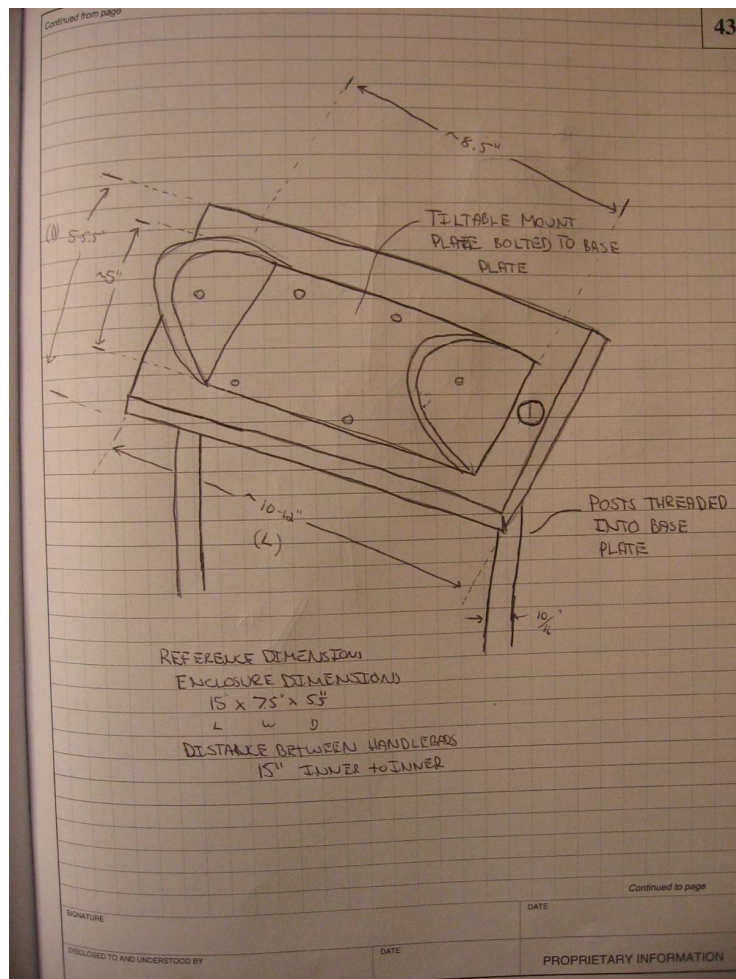 Continued from page
43
~8.5"
(D) 5-5.5"
~5"
TILTABLE MOUNT
PLATE BOLTED TO BASE
PLATE
~10-12"
(L)
POSTS THREADED
INTO BASE
PLATE
10/16"
REFERENCE DIMENSIONS
ENCLOSURE DIMENSIONS
15" x 7.5" x 5.5"
L W D
DISTANCE BETWEEN HANDLEBARS
15" INNER to INNER
Continued to page
SIGNATURE
DATE
DISCLOSED TO AND UNDERSTOOD BY
DATE
PROPRIETARY INFORMATION